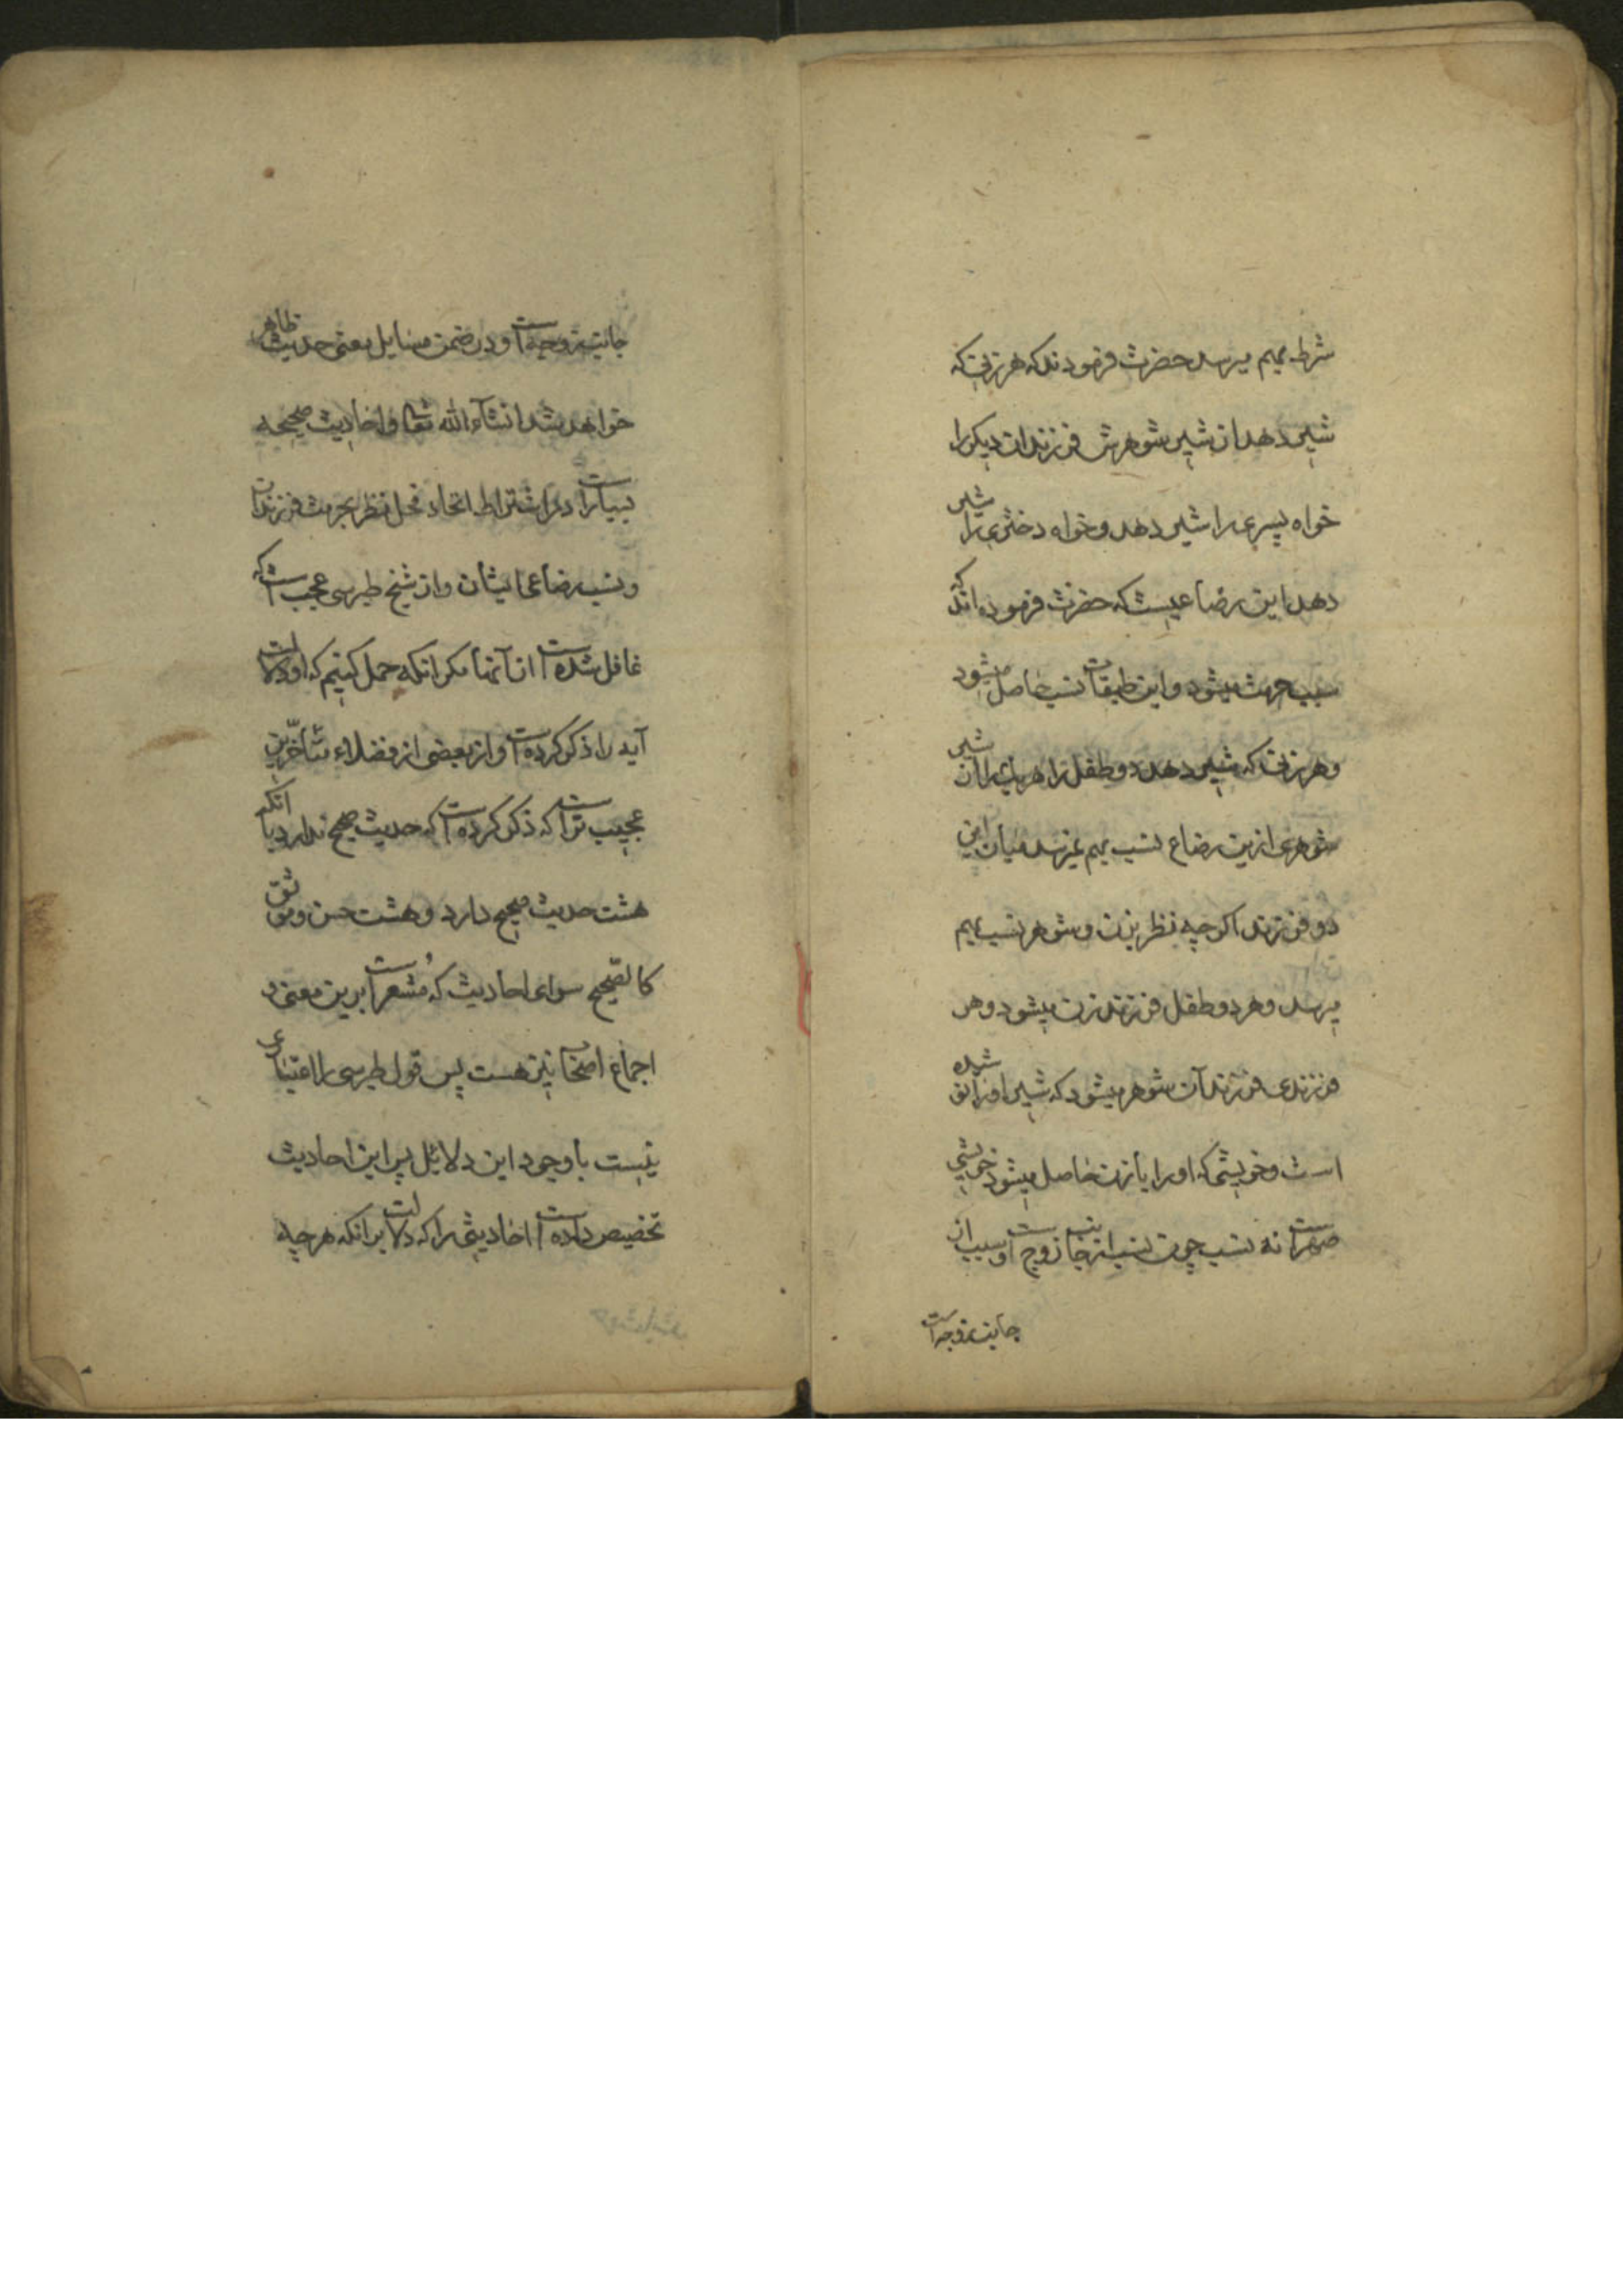 شرط بهم میرسد حضرت فرمودند که هر زنی که
شیر دهد از شیر شوهرش فرزندان دیکر را
خواه پسری را شیر دهد و خواه دختری را شیر
دهد این رضاعیست که حضرت فرموده‌اند که
سبب حرمت میشود و این طبقات نسب حاصل میشود
و هر زنی که شیر دهد دو طفل را هر یک را از شیر
شوهری ازین رضاع نسب بهم نمیرسد میان این
دو فرزند اکرچه بنظر بزن و شوهر نسب بهم
میرسد و هر دو طفل فرزند زن میشود و هر
فرزندی فرزند آن شوهر میشود که شیر او زائق شده
است و خویشی که او را با زن حاصل میشود خویشی
صهرست نه نسب چون نسب از جانب زوج است و سبب از
جانب زوجه است
جانب زوجه است و در ضمن مسایل معنی حدیث ظاهر
خواهد شد انشآء الله تعالی و احادیث صحیحه
بسیارست در اشتراط اتحاد فحل نظر بحرمت فرزندان
و نسب رضاعی ایشان و از شیخ طبرسی عجبست که
غافل شده است از آنها مکر انکه حمل کنیم که او دلالت
آیه را ذکر کرده است و از بعضی از فضلاء متأخرین
عجیب ترست که ذکر کرده است که حدیث صحیح ندارد با آنکه
هشت حدیث صحیح دارد و هشت حسن و موثق
کالصحیح سوای احادیث که مُشعرست برین معنی و
اجماع اصحاب نیز هست پس قول طبرسی را اعتباری
نیست با وجود این دلائل پس این احادیث
تخصیص داده است احادیثی را که دلالت بر انکه هرچه